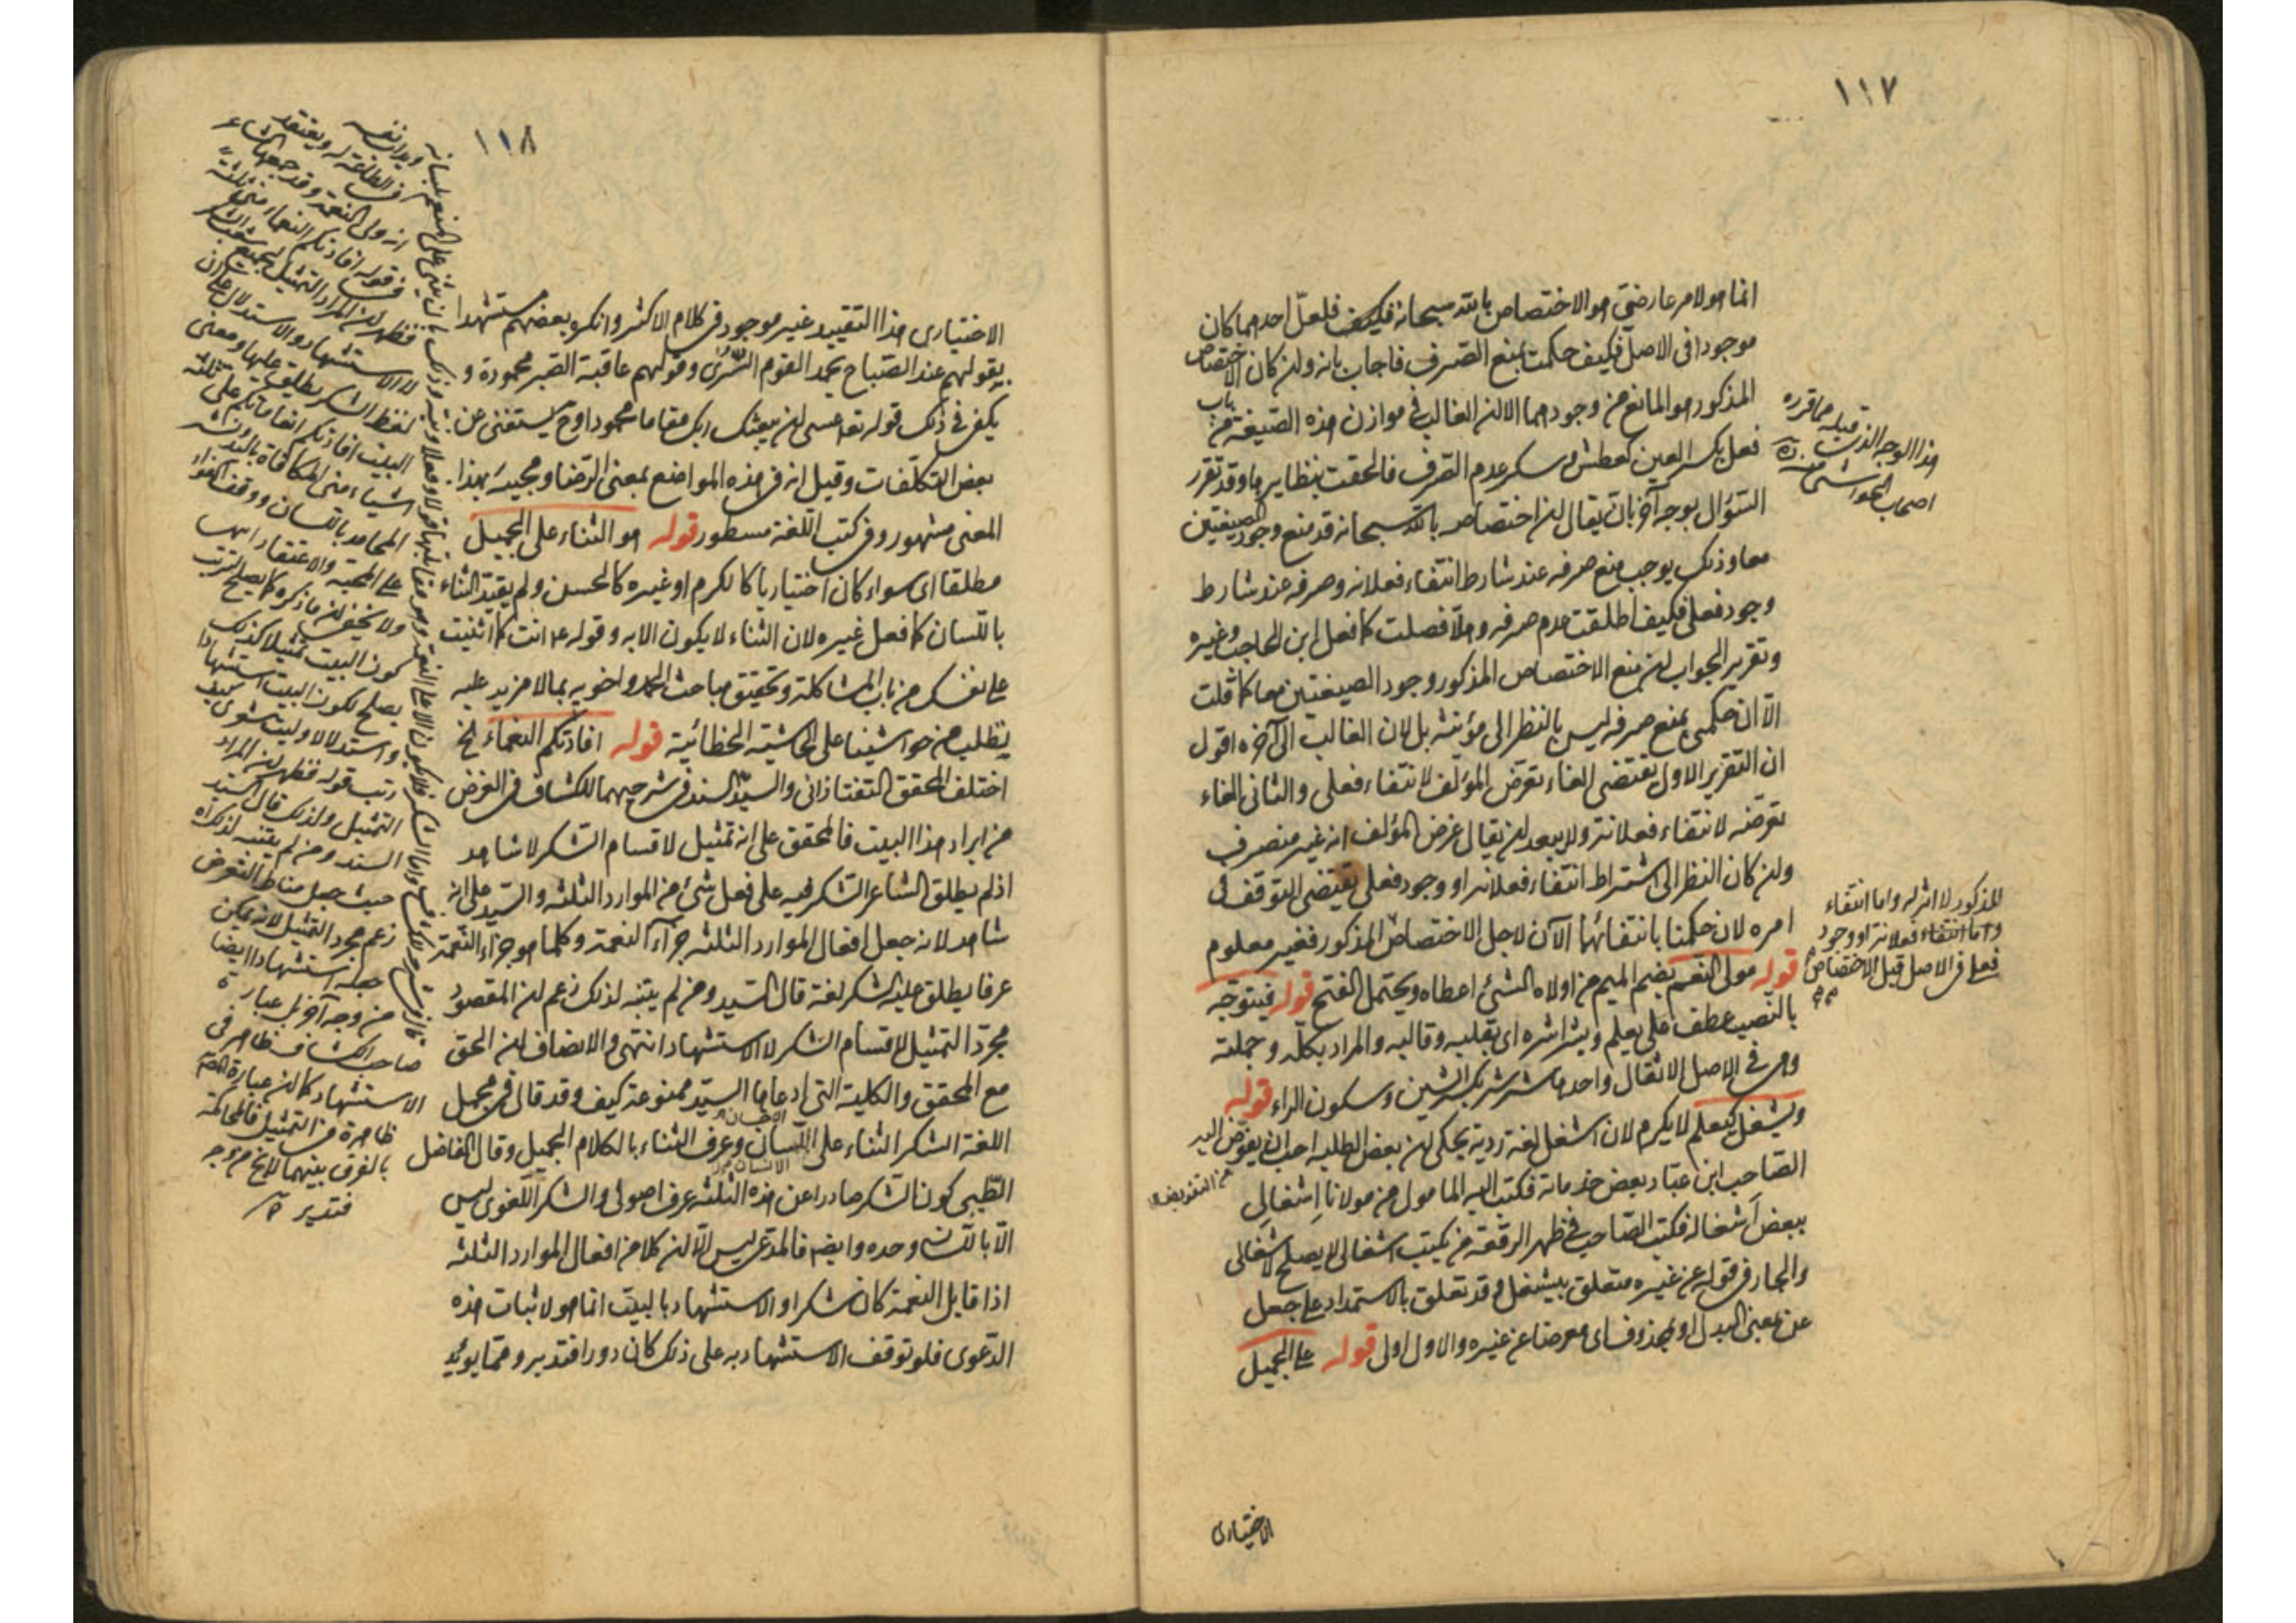 ١١٧
انما هو لامر عارضي هو الاختصاص بالله سبحانه فكيف فلعل احدهما كان
موجودا في الاصل فكيف حكمت بمنع الصرف فاجاب بانه ولئن كان الاختصاص
المذكور هو المانع من وجودهما الا ان الغالب في موازن هذه الصيغة من باب
فعل بكسر العين كعطش و سكر عدم الصرف فالحقت بنظايرها وقد تقرر
السؤال بوجه آخر بان يقال ان اختصاصه بالله سبحانه قد منع وجود الصيغتين
معا وذلك يوجب منع صرفه عند شارط انتفاء فعلانه وصرفه عند شارط
وجود فعلى فكيف اطلقت عدم صرفه وهلا فصلت كما فعل ابن الحاجب وغيره
وتقرير الجواب ان منع الاختصاص المذكور وجود الصيغتين معا كما قلت
الا ان حكمي بمنع صرفه ليس بالنظر الى مؤنثه بل لان الغالب الى آخره اقول
ان التقرير الاول يقتضي الغاء تعرض المؤلف لانتفاء فعلى والثاني الغاء
تعرضه لانتفاء فعلانة ولا يبعد ان يقال غرض المؤلف انه غير منصرف
ولئن كان النظر الى اشتراط انتفاء فعلانه او وجود فعلى يقتضي التوقف في
امره لان حكمنا بانتفائهما الآن لاجل الاختصاص المذكور فغير معلوم
قوله مولى النعم بضم الميم من اولاه الشئ اعطاه ويحتمل الفتح قوله فيتوجه
بالنصب عطف على يعلم وبشراشره اى بقلبه وقالبه والمراد بكله وجملته
وهى في الاصل الاثقال واحدها شرشر بكسر الشين وسكون الراء قوله
ويشغل كيعلم لا يكرم لان اشغل لغة ردية يحكى ان بعض الطلبه احب ان يفوض اليه
الصاحب ابن عباد بعض خدماته فكتب اليه المامول من مولانا اشغالي
ببعض اشغاله فكتب الصاحب في ظهر الرقعة من يكتب اشغالي لا يصلح لاشغالي
والجار في قوله عن غيره متعلق بيشغل وقد تعلق بالاستمداد على جعل
عن بمعنى البدل او بمحذوف اى معرضا عن غيره والاول اولى قوله على الجميل
الاختيارى
هذا الوجه الذى قبله مما قرره
اصحاب الحواشى منه
المذكور لا اثر له واما انتفاء
واما انتفاء فعلانة او وجود
فعلى في الاصل قبل الاختصاص
من التفويض
١١٨
الاختيارى هذا التقييد غير موجود في كلام الاكثر وانكره بعضهم مستشهدا
بقولهم عند الصباح يحمد القوم السرى وقولهم عاقبة الصبر محمودة و
يكفى في ذلك قوله تعه عسى ان يبعثك ربك مقاما محمودا وح يستغنى عن
بعض التكلفات وقيل انه في هذه المواضع بمعنى الرضا ومجيئه بهذا
المعنى مشهور وفى كتب اللغة مسطور قوله هو الثناء على الجميل
مطلقا اى سواء كان اختياريا كالكرم او غيره كالحسن ولم يقيد الثناء
باللسان كما فعل غيره لان الثناء لا يكون الا به وقوله ع انت كما اثنيت
على نفسك من باب المشاكلة وتحقيق مباحث الحمد واخويه بما لا مزيد عليه
يطلب من حواشينا على الحاشية الخطائية قوله افادتكم النعماء الخ
اختلف المحقق التفتازانى والسيد السند في شرحيهما للكشاف في الغرض
من ايراد هذا البيت فالمحقق على انه تمثيل لاقسام الشكر لا شاهد
اذ لم يطلق الشاعر الشكر فيه على فعل شئ من الموارد الثلثه والسيد على انه
شاهد لانه جعل افعال الموارد الثلثه جزآء النعمة وكلما هو جزاء النعمة
عرفا يطلق عليه الشكر لغة قال السيد ومن لم يتنبه لذلك زعم ان المقصود
مجرد التمثيل لاقسام الشكر لا الاستشهاد انتهى والانصاف ان الحق
مع المحقق والكلية التى ادعاها السيد ممنوعة كيف وقد قال في مجمل
اللغة الشكر الثناء على اللسان وعرف الثناء بالكلام الجميل وقال الفاضل
الطيبى كون الشكر صادرا عن هذه الثلثه عرف اصولى والشكر اللغوى ليس
الا باللسان وحده وايضا فالمدعى ليس الا ان كلا من افعال الموارد الثلثه
اذا قابل النعمة كان شكرا والاستشهاد بالبيت انما هو لاثبات هذه
الدعوى فلو توقف الاستشهاد به على ذلك كان دورا فتدبر ومما يؤيد
انه ولى النعمة وقد جمعها الشاعر
في قوله افادتكم النعماء منى ثلثة
فظهر ان المراد التمثيل لجميع شعب الشكر
لا الاستشهاد والاستدلال على ان
لفظ الشكر يطلق عليها ومعنى
البيت افادتكم انعاماتكم على ثلثة
اشياء منى المكافاة باليد ونشر
المحامد باللسان ووقف الفؤاد
على المحبة والاعتقاد انتهى
ولا يخفى ان ما ذكره كما يصلح لترتب
كون البيت تمثيلا كذلك
يصلح لكون البيت استشهادا
واستدلالا وليت شعرى كيف
رتب قوله فظهر ان المراد
التمثيل ولذلك قال السيد
السند ومن لم يتنبه لذلك اه
حيث جعل مناط التعرض
زعم مجرد التمثيل لانه يمكن
جعله استشهادا ايضا
من وجه آخر بل عبارة
صاحب الكشاف ظاهر في
الاستشهاد كما ان عبارة القاضى
ظاهرة في التمثيل فالمحاكمة
بالفرق بينهما لا يخ من وجه
فتدبر